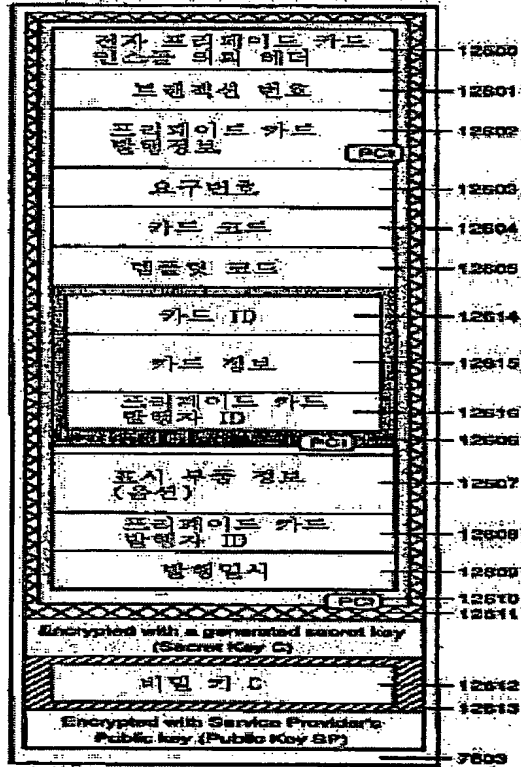 전자 프리페이드 카드
인스톨 의뢰 헤더
12600
트랜잭션 번호
12601
프리페이드 카드
발행정보
PCI
12602
요구번호
12603
카드 코드
12604
템플릿 코드
12605
카드 ID
12614
카드 정보
12615
프리페이드 카드
발행자 ID
12616
PCI
12606
표시 부품 정보
(옵션)
12607
프리페이드 카드
발행자 ID
12608
발행일시
12609
PCI
12610
12611
Encrypted with a generated secret key
(Secret Key C)
비밀 키 C
12612
12613
Encrypted with Service Provider's
Public key (Public Key SP)
7603